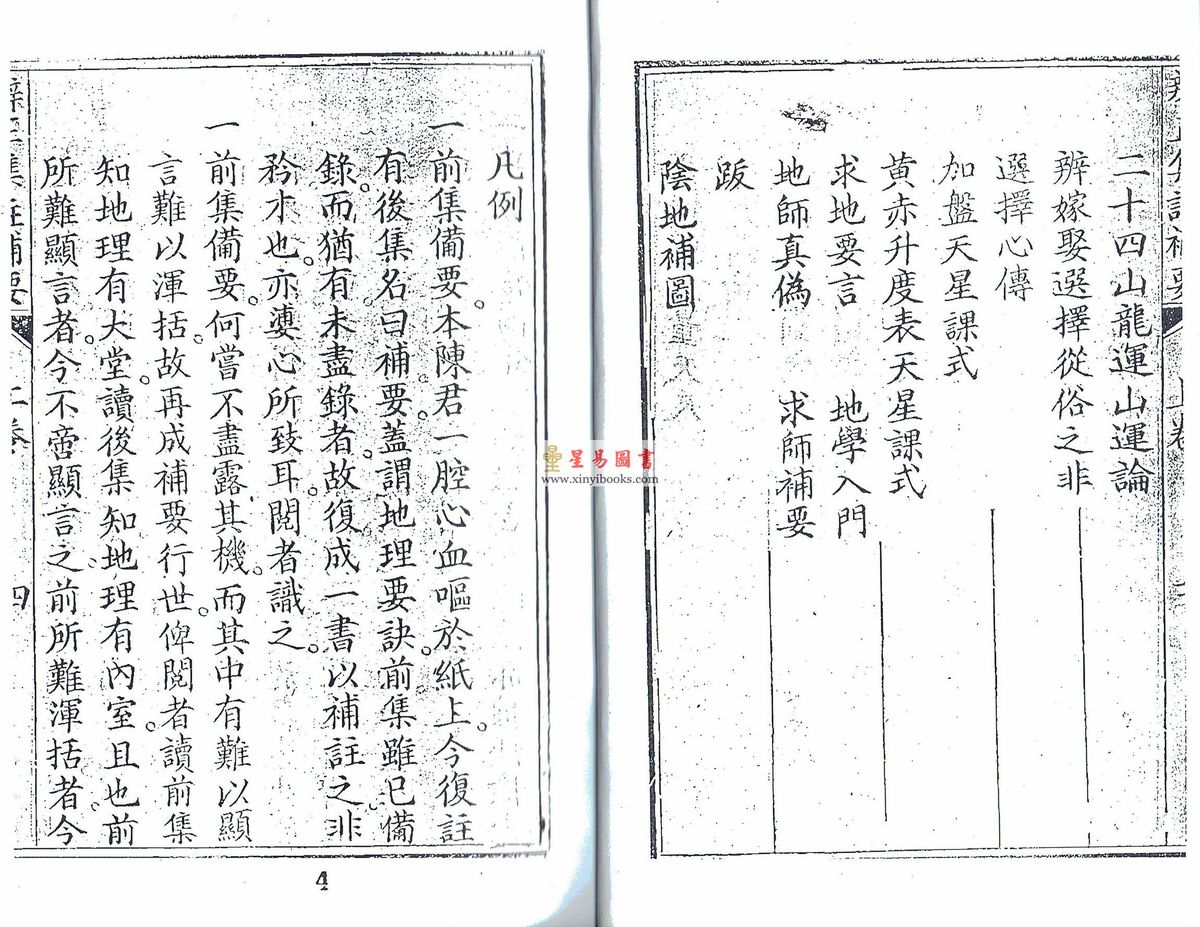 二十四山龍運山運論
辨嫁娶選擇從俗之非
選擇心傳
加盤天星課式
黃赤升度表天星課式
求地要言　地學入門
地師真偽　求師補要
跋
陰地補圖
凡例
一前集備要。本陳君一腔心血嘔於紙上。今復註
有後集名曰補要。蓋謂地理要訣。前集雖已備
錄。而猶有未盡錄者。故復成一書以補註之非
矜才也。亦婆心所致耳。閱者識之。
一前集備要。何嘗不盡露其機。而其中有難以顯
言難以渾括故再成補要行世。俾閱者讀前集
知地理有大堂。讀後集知地理有內室。且也前
所難顯言者。今不啻顯言之。前所難渾括者。今
四
4
星易圖書
www.xinyibooks.com